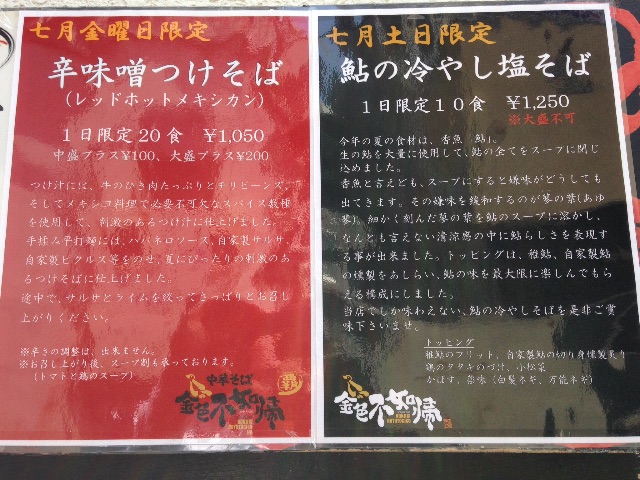 七月金曜日限定
辛味噌つけそば
(レッドホットメキシカン)
1日限定20食 ¥1,050
中盛プラス¥100、大盛プラス¥200
つけ汁には、牛のひき肉たっぷりとチリビーンズ、
そしてメキシコ料理で必要不可欠なスパイス数種
を使用して、刺激のあるつけ汁に仕上げました。
手揉み平打麺には、ハバネロソース、自家製サルサ、
自家製ピクルス等をのせ、夏にぴったりの刺激のあ
るつけそばに仕上げました。
途中で、サルサとライムを絞ってさっぱりとお召し
上がりください。
※辛さの調整は、出来ません。
※お召し上がり後、スープ割も承っております。
(トマトと鶏のスープ)
中華そば
金色不如帰
七月土日限定
鮎の冷やし塩そば
1日限定10食 ¥1,250
※大盛不可
今年の夏の食材は、香魚「鮎」。
生の鮎を大量に使用して、鮎の全てをスープに閉じ
込めました。
香魚と言えども、スープにすると嫌味がどうしても
出てきます。その嫌味を緩和するのが蓼の葉(あゆ
蓼)、細かく刻んだ蓼の葉を鮎のスープに溶かし、
なんとも言えない清涼感の中に鮎らしさを表現す
る事が出来ました。トッピングは、稚鮎、自家製鮎
の燻製をあしらい、鮎の味を最大限に楽しんでもら
える構成にしました。
当店でしか味わえない、鮎の冷やしそばを是非ご賞
味下さいませ。
トッピング
稚鮎のフリット、自家製鮎の切り身燻製炙り
鶏のタタキのづけ、小松菜
かぼす、薬味(白髪ネギ、万能ネギ)
金色不如帰